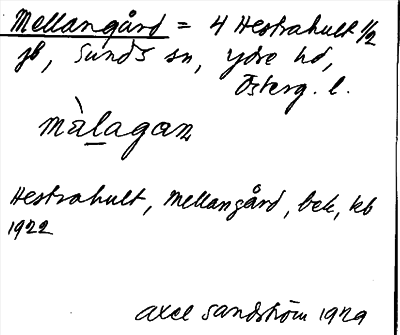 Mellangård = 4 Hestrahult 1/2
jb, Sunds sn, Ydre hd,
Österg. l.
màlagaɲ
Hestrahult, Mellangård, bek, kb
1922
Axel Sandström 1929